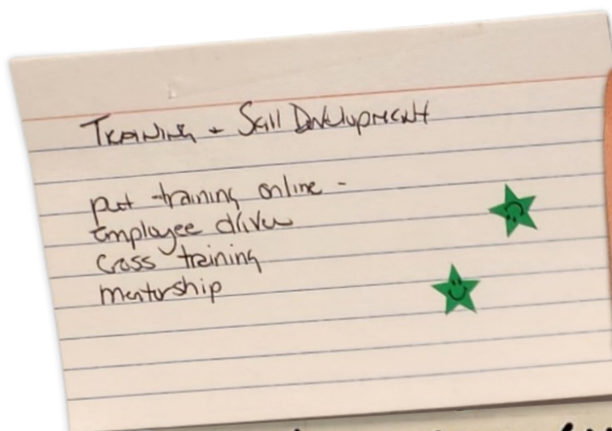 Training + Skill Development
put training online -
Employee driven
Cross training
mentorship